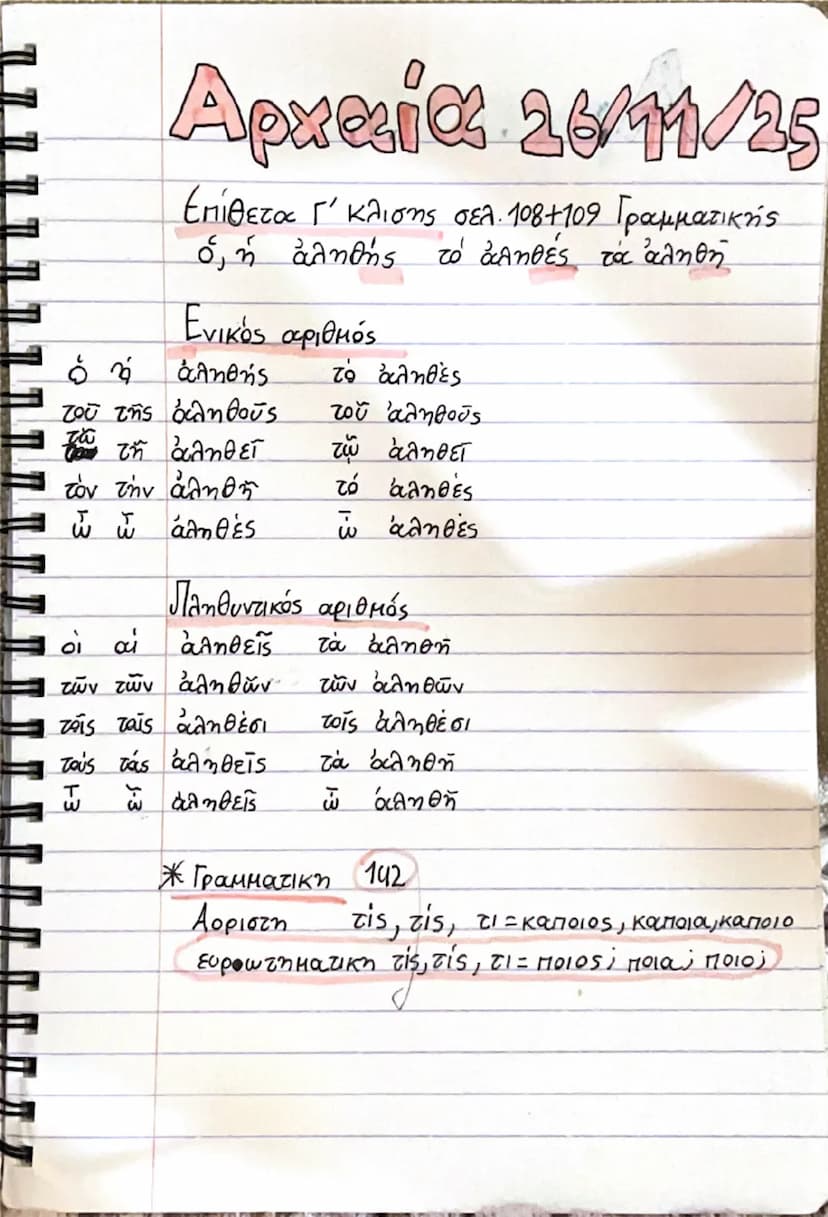 Αρχαία 26/11/25
Επίθετα Γ' κλισης σελ. 108+109 Γραμματικής
ὅ, ἥ ἀληθής τό ἀληθές τά ἀληθῆ
Ενικός αριθμός
ὁ ἡ ἀληθής τὸ ἀληθὲς
τοῦ τῆς ἀληθοῦς τοῦ ἀληθοῦς
τῶ τῆ ἀληθεῖ τῷ ἀληθεῖ
τὸν τὴν ἀληθῆ τό ἀληθές
ὦ ὦ ἀληθὲς ὦ ἀληθὲς
Πληθυντικός αριθμός
οἱ αἱ ἀληθεῖς τὰ ἀληθῆ
τῶν τῶν ἀληθῶν τῶν ἀληθῶν
τοῖς ταῖς ἀληθέσι τοῖς ἀληθέσι
τούς τάς ἀληθεῖς τὰ ἀληθῆ
ὦ ὦ ἀληθεῖς ὦ ἀληθῆ
* Γραμματικη 142
Αοριστη τίς, τίς, τι = καποιος, καποια, καποιο
ευρωωτηματικη τίς, τίς, τι = ποιος; ποια; ποιο;